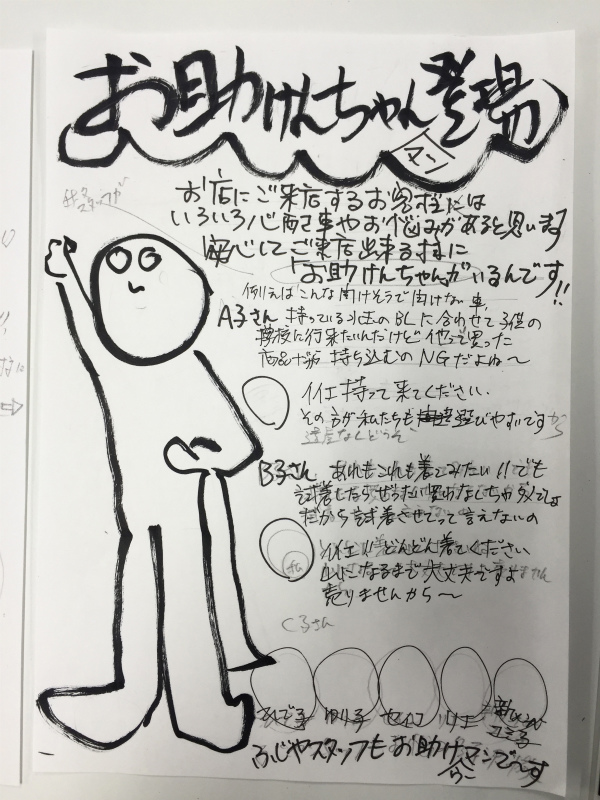 お助けんちゃん登場
マン
お店にご来店するお客様には
いろいろ心配事やお悩みがあると思います
安心してご来店出来る様に
「お助けんちゃん」がいるんです!!
例えばこんな聞けそうで聞けない事、
A子さん 持っている水色のBLに合わせて子供の
学校に行来たいんだけど他で買った
商品 持ち込むのNGだよね〜
イイエ持って来てください、
その方が私たちも選びやすいですから
遠慮なくどうぞ
B子さん あれもこれも着てみたい!!でも
試着したらぜったい買わなくしちゃダメでしょ
だから試着させてって言えないの
イイエ!!どんどん着てください
山になるまで大丈夫ですよ
売りませんから〜
C子さん
ゆり子 セイコ
ふじやスタッフもお助けマンで〜す